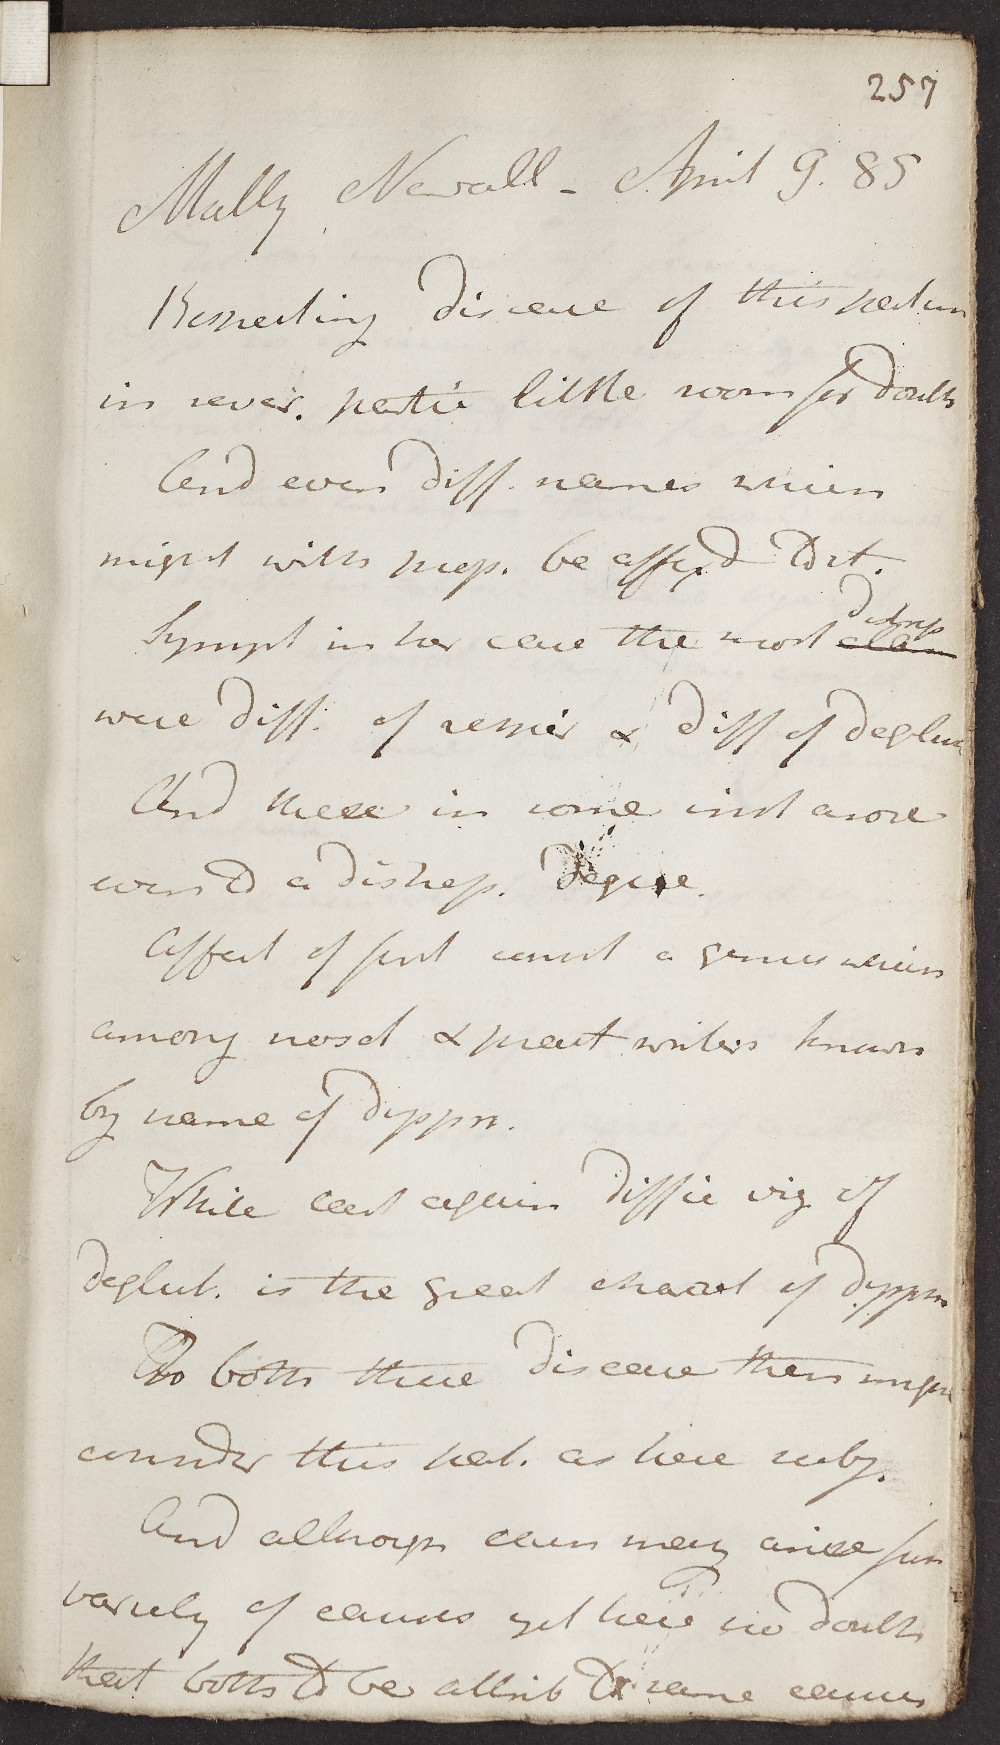 257
Mally Newall - April 9. 85
Respecting disease of this patien
in sever. partic little room for doubt
And even diff. names which
might with prop. be affix.d to it.
Sympt in her case the most distress
were diff. of respir & diff of deglut
And these in some inst arose
even to a distress. degree.
Affect of first const a genus which
among nosol & pract writers known
by name of dyspn.
While last again diffic viz of
deglut. is the great charact of dysph
To both these disease then might
consider this pat. as here subj.
And although each may arise from
variety of causes yet here no doubt
that both to be attrib to same cause